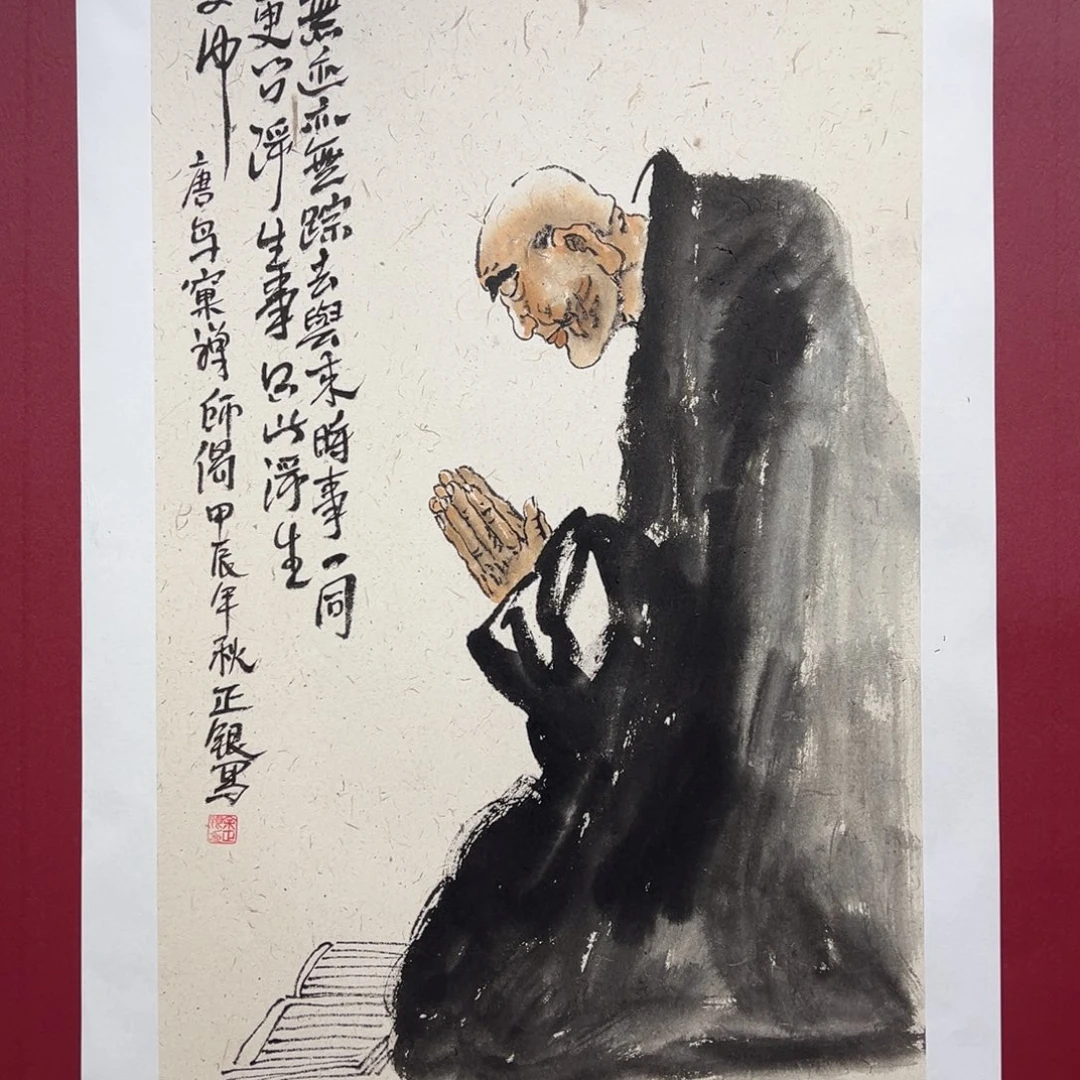 無迹亦無踪去與来時事一同
更问浮生事只此浮生
中
唐鸟窠禅師偈甲辰年秋正银写